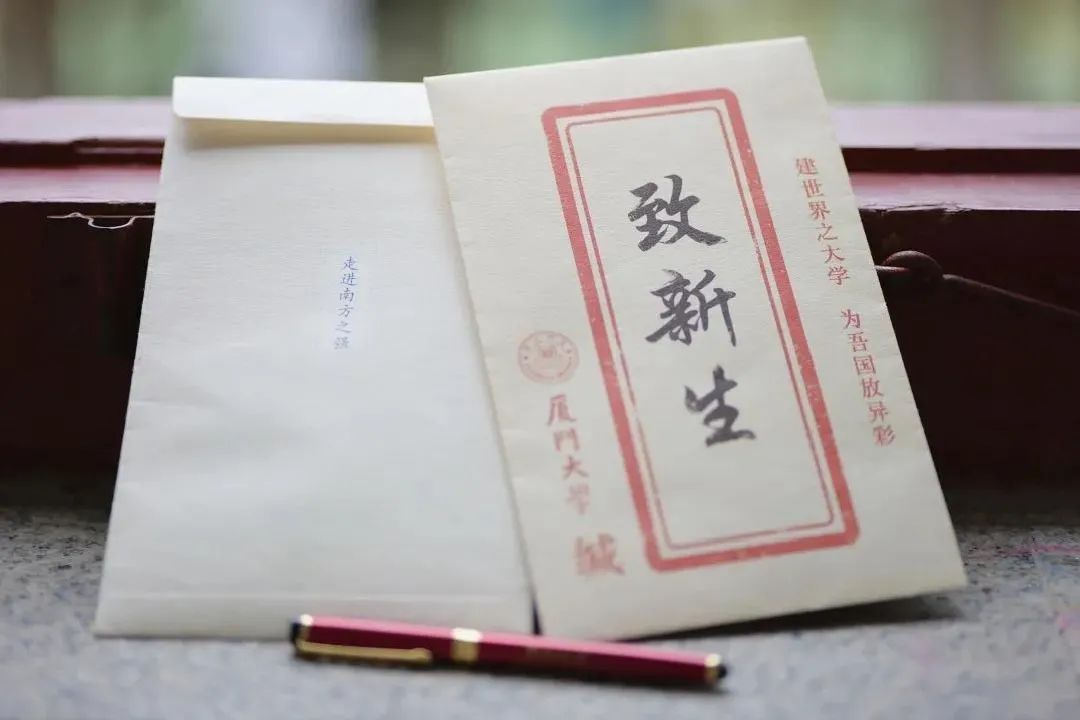 建世界之大学 为吾国放异彩
致新生
厦門大學 缄
走进南方之强